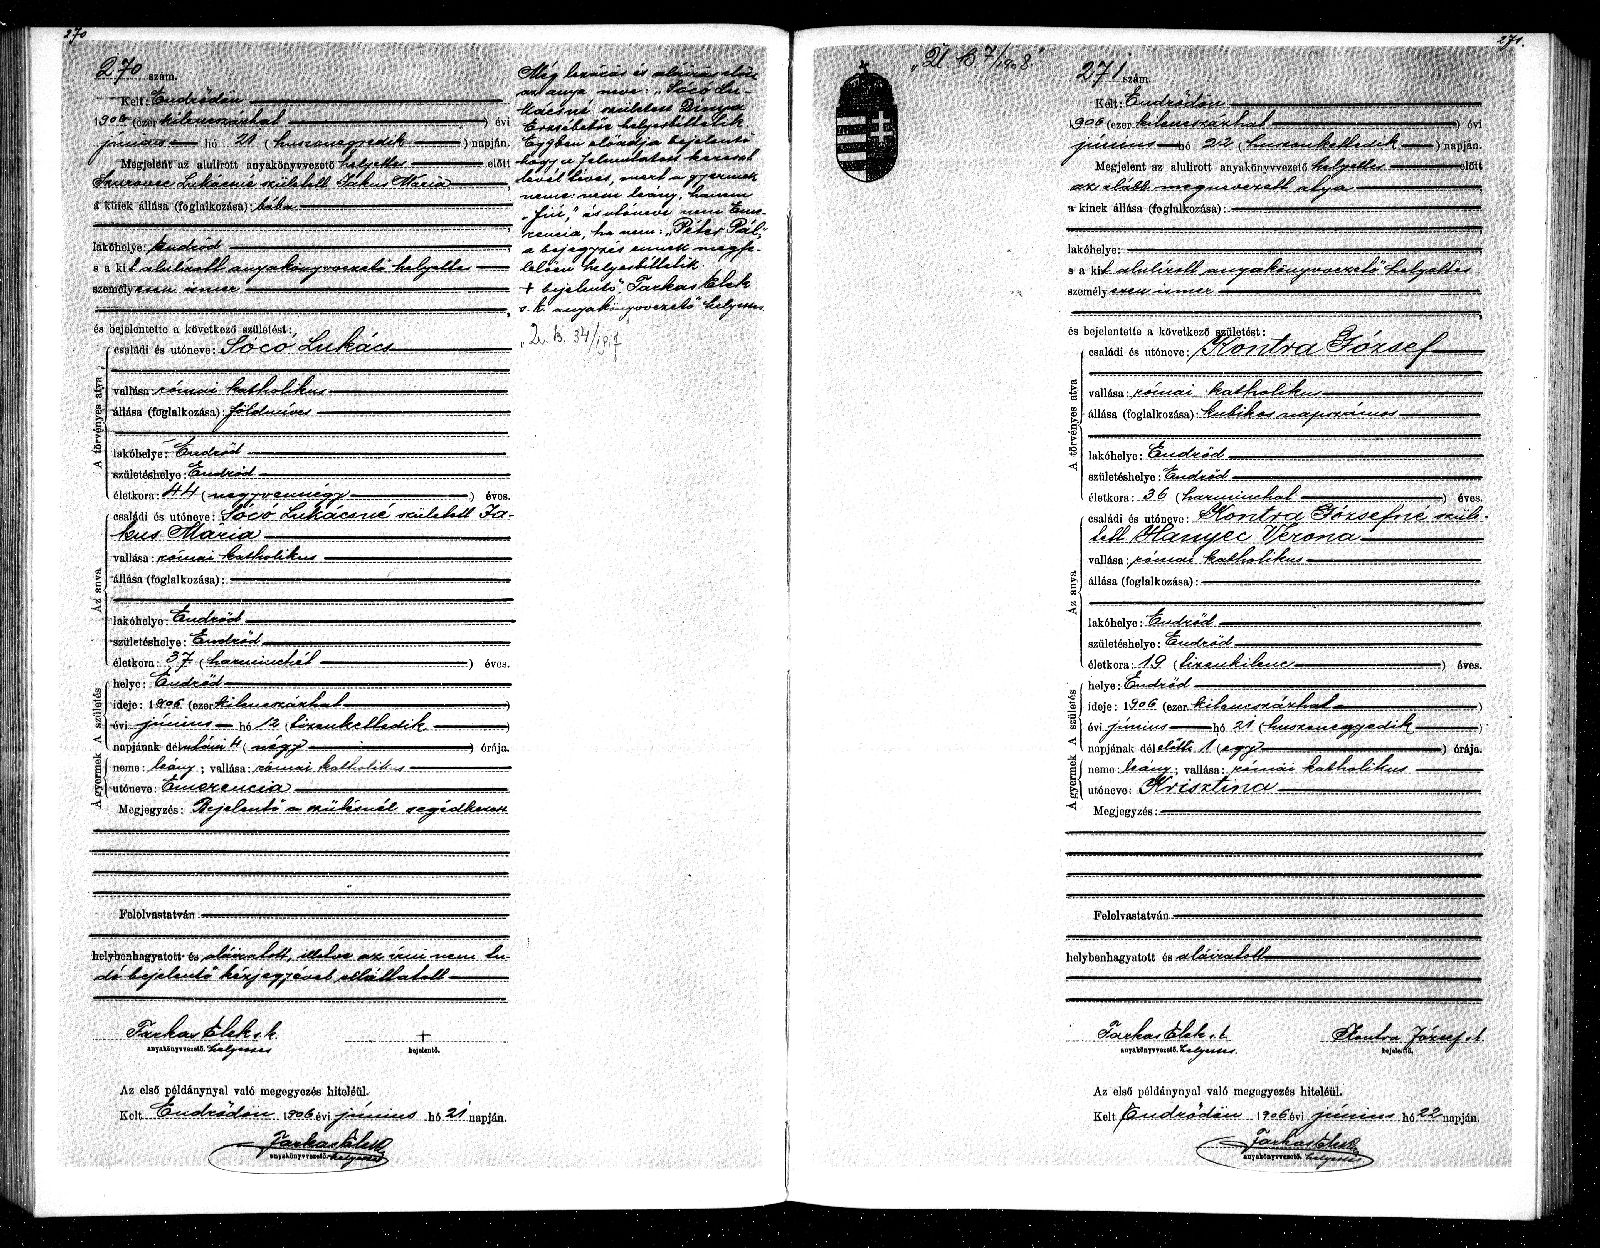 270
270 szám.
Kelt: Endrődön
1906 (ezer kilenczszázhat) évi
június hó 21 (huszonegyedik) napján.
Megjelent az alulirott anyakönyvvezető helyettes előtt
Szurovec Lukácsné született Jakus Mária
a kinek állása (foglalkozása): bába
lakóhelye: Endrőd
s a kit alulirott anyakönyvvezető helyettes
személyesen ismer
és bejelentette a következő születést:
A törvényes atya
családi és utóneve: Sócó Lukács
vallása: római katholikus
állása (foglalkozása): földmíves
lakóhelye: Endrőd
születéshelye: Endrőd
életkora: 44 (negyvennégy) éves.
Az anya
családi és utóneve: Sócó Lukácsné született Ja-
kus Mária
vallása: római katholikus
állása (foglalkozása):
lakóhelye: Endrőd
születéshelye: Endrőd
életkora: 37 (harminchét) éves.
A születés
helye: Endrőd
ideje: 1906 (ezer kilenczszázhat
évi június hó 12 (tizenkettedik)
napjának délutáni 4 (négy) órája.
A gyermek
neme: leány; vallása: római katholikus
utóneve: Emerencia
Megjegyzés: Bejelentő a szülésnél segédkezett
Felolvastatván
helybenhagyatott és aláiratott, illetve az írni nem tu-
dó bejelentő kézjegyével elláttatott
Farkas Elek s.k. +
anyakönyvvezető. helyettes bejelentő.
Az első példánynyal való megegyezés hiteléül.
Kelt Endrődön 1906 évi június hó 21 napján.
Farkas Elek
anyakönyvvezető. helyettes
Még lezárás és aláírás előtt
az anya neve: „Sócó Lu-
kácsné született Dinya
Erzsébetre helyesbíttetik
Egyben előadja bejelentő
hogy a felmutatott kereszt
levél téves, mert a gyermek
neme nem leány, hanem
„fiú," és utóneve nem Eme-
rencia, hanem: „Péter Pál,"
a bejegyzés ennek megfe-
lelően helyesbíttetik
+ bejelentő, Farkas Elek
s. k. anyakönyvvezető helyettes.
2. B. 34/1917
„Ü B 7/1908."
271.
271 szám.
Kelt: Endrődön
1906 (ezer kilenczszázhat) évi
június hó 22 (huszonkettedik) napján.
Megjelent az alulirott anyakönyvvezető helyettes előtt
az alább megnevezett atya
a kinek állása (foglalkozása):
lakóhelye:
s a kit alulirott anyakönyvvezető helyettes
személyesen ismer
és bejelentette a következő születést:
A törvényes atya
családi és utóneve: Kontra József
vallása: római katholikus
állása (foglalkozása): kubikos napszámos
lakóhelye: Endrőd
születéshelye: Endrőd
életkora: 36 (harminchat) éves.
Az anya
családi és utóneve: Kontra Józsefné szüle-
tett Hanyec Verona
vallása: római katholikus
állása (foglalkozása):
lakóhelye: Endrőd
születéshelye: Endrőd
életkora: 19 (tizenkilenc) éves.
A születés
helye: Endrőd
ideje: 1906 (ezer kilenczszázhat)
évi június hó 21 (huszonegyedik)
napjának délelőtti 1 (egy) órája.
A gyermek
neme: leány; vallása: római katholikus
utóneve: Krisztina
Megjegyzés:
Felolvastatván
helybenhagyatott és aláiratott
Farkas Elek s.k. Kontra József s.k.
anyakönyvvezető. helyettes. bejelentő.
Az első példánynyal való megegyezés hiteléül.
Kelt Endrődön 1906 évi június hó 22 napján.
Farkas Elek
anyakönyvvezető. helyettes